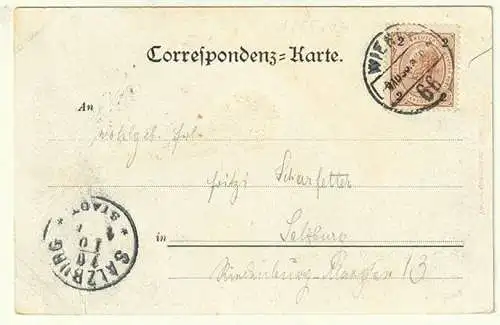 Correspondenz=Karte.
WIEN
66
2
2
An
wohlgeb. Frl.
Fritzi Scharfetter
in Salzburg
Riedenburg 13
SALZBURG
STADT